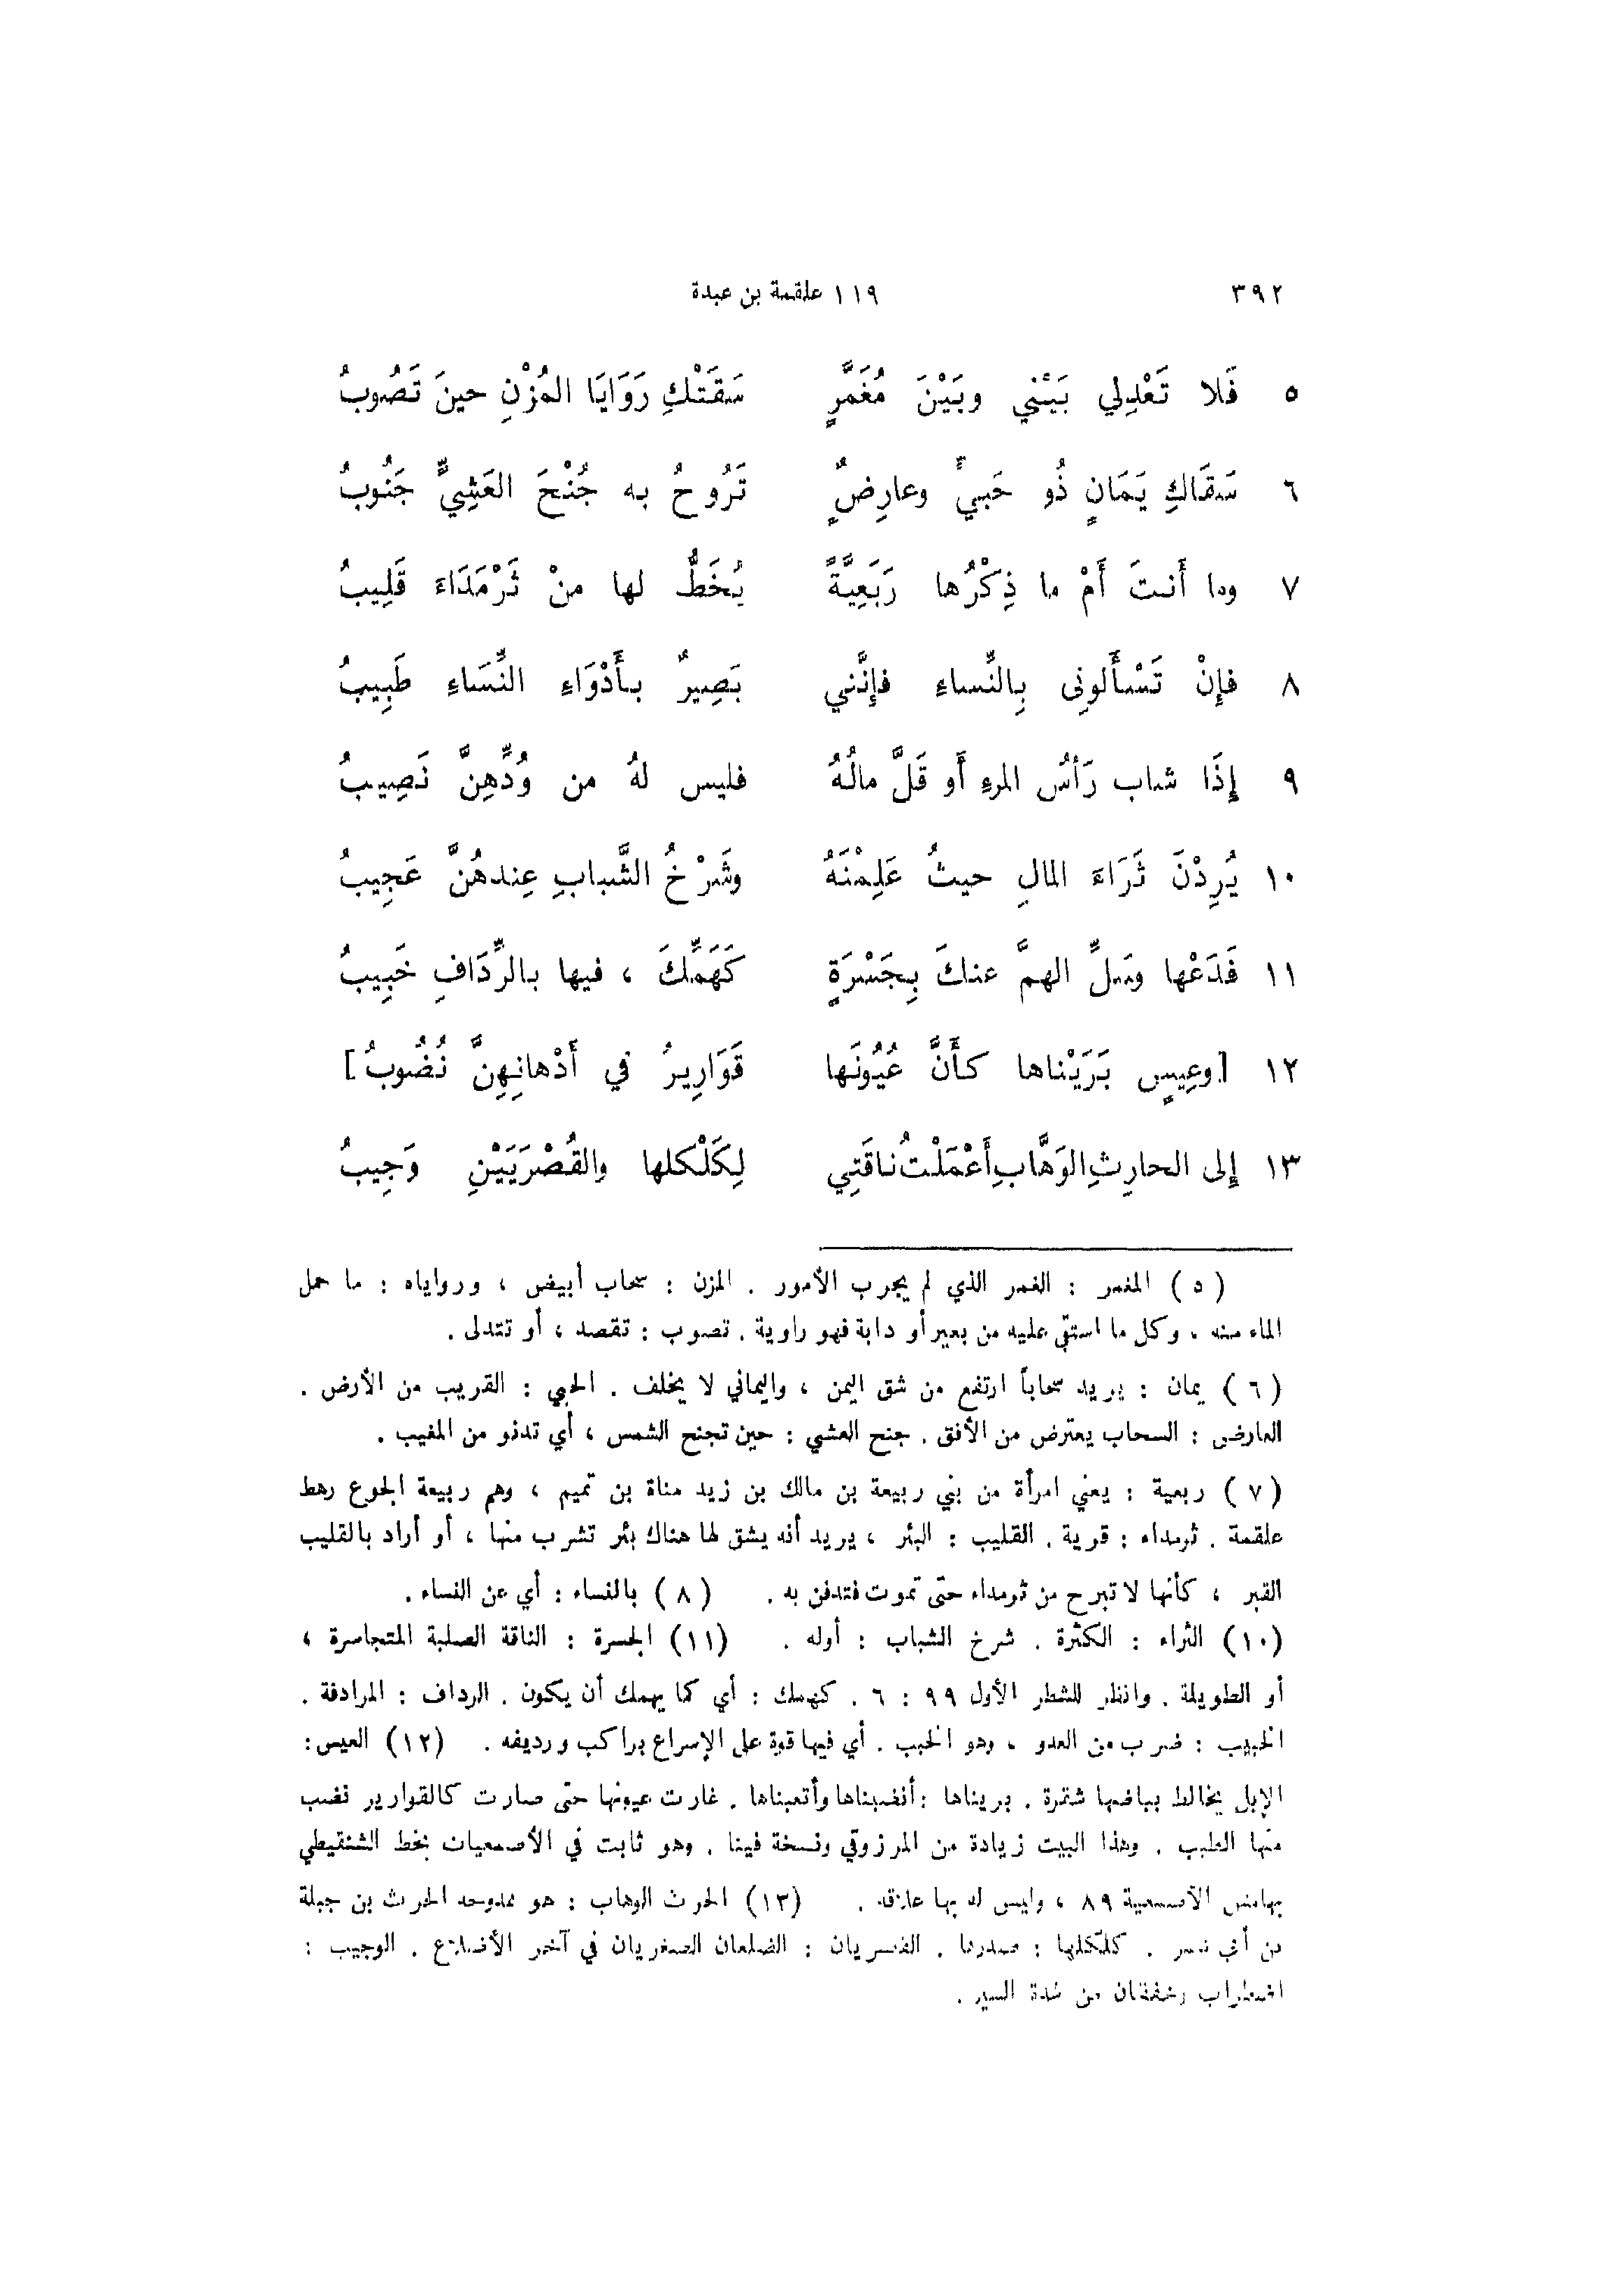 ٣٩٢ ١١٩ علقمة بن عبدة
٥ فَلا تَعْدِلِي بَيْنِي وبَيْنَ مُغَمَّرٍ سَقَتْكِ رَوَايَا المُزْنِ حينَ تَصُوبُ
٦ سَقَاكِ يَمَانٍ ذُو حَبيٍّ وعارِضٍ تَرُوحُ به جُنْحَ العَشِيِّ جَنُوبُ
٧ وما أَنتَ أَمْ ما ذِكْرُها رَبَعِيَّةً يُخَطُّ لها منْ ثَرْمَدَاءَ قَلِيبُ
٨ فإِنْ تَسْأَلونِى بِالنِّساءِ فإِنَّنِي بَصِيرٌ بأَدْوَاءِ النِّسَاءِ طَبِيبُ
٩ إِذَا شاب رَأسُ المرءِ أَو قَلَّ مالُهُ فليس لهُ من وُدِّهِنَّ نَصِيبُ
١٠ يُرِدْنَ ثَرَاءَ المالِ حيثُ عَلِمْنَهُ وشَرْخُ الشَّبابِ عِندهُنَّ عَجِيبُ
١١ فَدَعْها وسَلِّ الهمَّ عنكَ بِجَسْرَةٍ كَهَمِّكَ ، فيها بالرِّدَافِ خَبِيبُ
١٢ [وعِيسٍ بَرَيْناها كأَنَّ عُيُونَها قَوَارِيرُ في أَدْهانِهِنَّ نُضُوبُ]
١٣ إِلى الحارِثِ الوَهَّابِ أَعْمَلْتُ ناقَتِي لِكَلْكلها والقُصْرَيَيْنِ وَجِيبُ
(٥) المغمر : الغمر الذي لم يجرب الأمور . المزن : سحاب أبيض ، ورواياه : ما حمل
الماء منه ، وكل ما استقى عليه من بعير أو دابة فهو راوية . تصوب : تقصد ، أو تتدلى .
(٦) يمان : يريد سحاباً ارتفع من شق اليمن ، واليماني لا يخلف . الحبي : القريب من الأرض .
العارض : السحاب يعترض من الأفق . جنح العشي : حين تجنح الشمس ، أي تدنو من المغيب .
(٧) ربعية : يعني امرأة من بني ربيعة بن مالك بن زيد مناة بن تميم ، وهم ربيعة الجوع رهط
علقمة . ثرمداء : قرية . القليب : البئر ، يريد أنه يشق لها هناك بئر تشرب منها ، أو أراد بالقليب
القبر ، كأنها لا تبرح من ثرمداء حتى تموت فتدفن به . (٨) بالنساء : أي عن النساء .
(١٠) الثراء : الكثرة . شرخ الشباب : أوله . (١١) الجسرة : الناقة الصلبة المتجاسرة ،
أو الطويلة . وانظر للشطر الأول ٩٩ : ٦ . كهمك : أي كما يهمك أن يكون . الرداف : المرادفة .
الخبيب : ضرب من العدو ، وهو الخبب . أي فيها قوة على الإسراع براكب ورديفه . (١٢) العيس :
الإبل يخالط بياضها شقرة . بريناها : أنضيناها وأتعبناها . غارت عيونها حتى صارت كالقوارير نضب
منها الطيب . وهذا البيت زيادة من المرزوقي ونسخة فينا . وهو ثابت في الأصمعيات بخط الشنقيطي
بهامش الأصمعية ٨٩ ، وليس له بها علاقة . (١٣) الحرث الوهاب : هو ممدوحه الحرث بن جبلة
بن أبي شمر . كلكلها : صدرها . القصريان : الضلعان الصغريان في آخر الأضلاع . الوجيب :
اضطراب وخفقان من شدة السير .